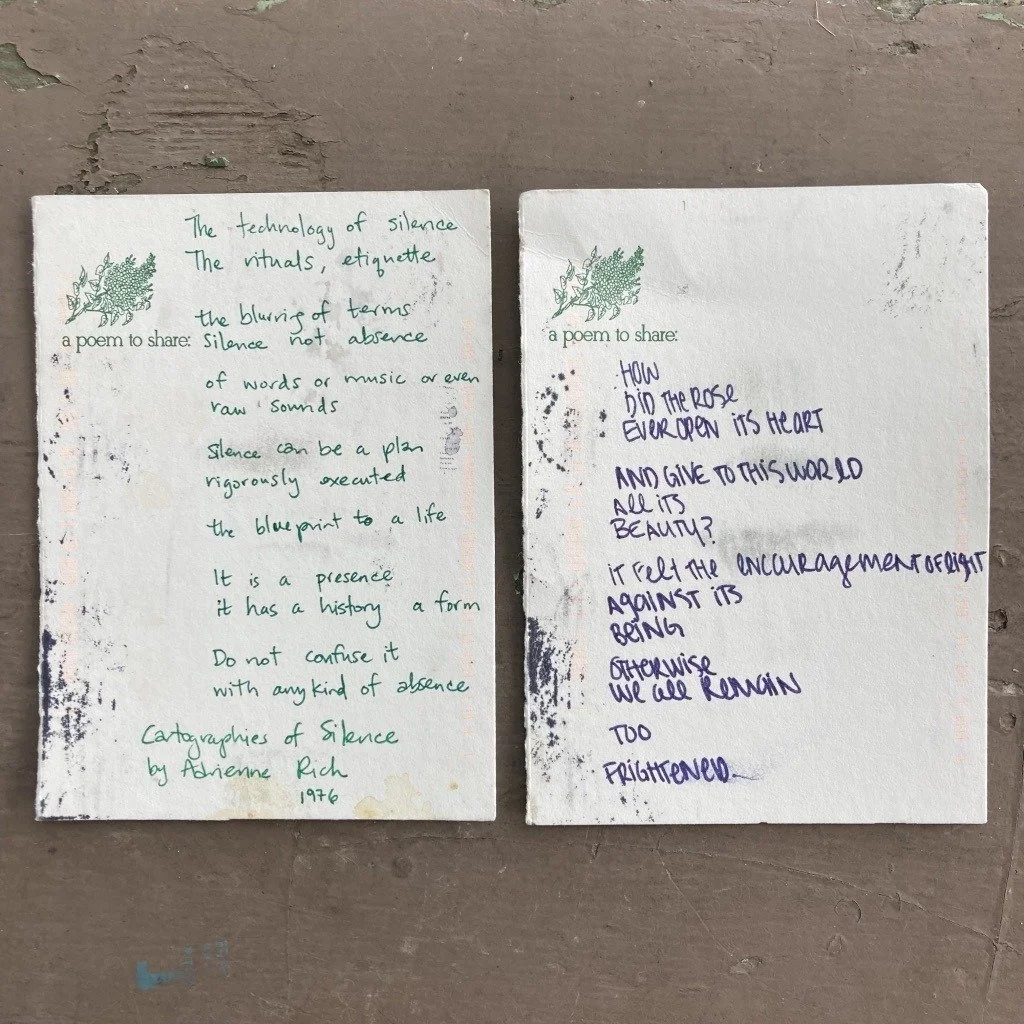 The technology of silence
The rituals, etiquette
the blurring of terms
silence not absence
a poem to share:
of words or music or even
raw sounds
silence can be a plan
rigorously executed
the blueprint to a life
It is a presence
it has a history a form
Do not confuse it
with any kind of absence
Cartographies of Silence
by Adrienne Rich
1976
a poem to share:
HOW
DID THE ROSE
EVER OPEN ITS HEART
AND GIVE TO THIS WORLD
ALL ITS
BEAUTY?
IT FELT THE ENCOURAGEMENT OF LIGHT
AGAINST ITS
BEING
OTHERWISE
WE ALL REMAIN
TOO
FRIGHTENED